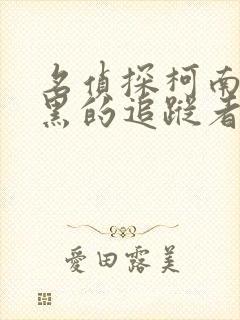 名偵探柯南
黑的追蹤者
愛田露美